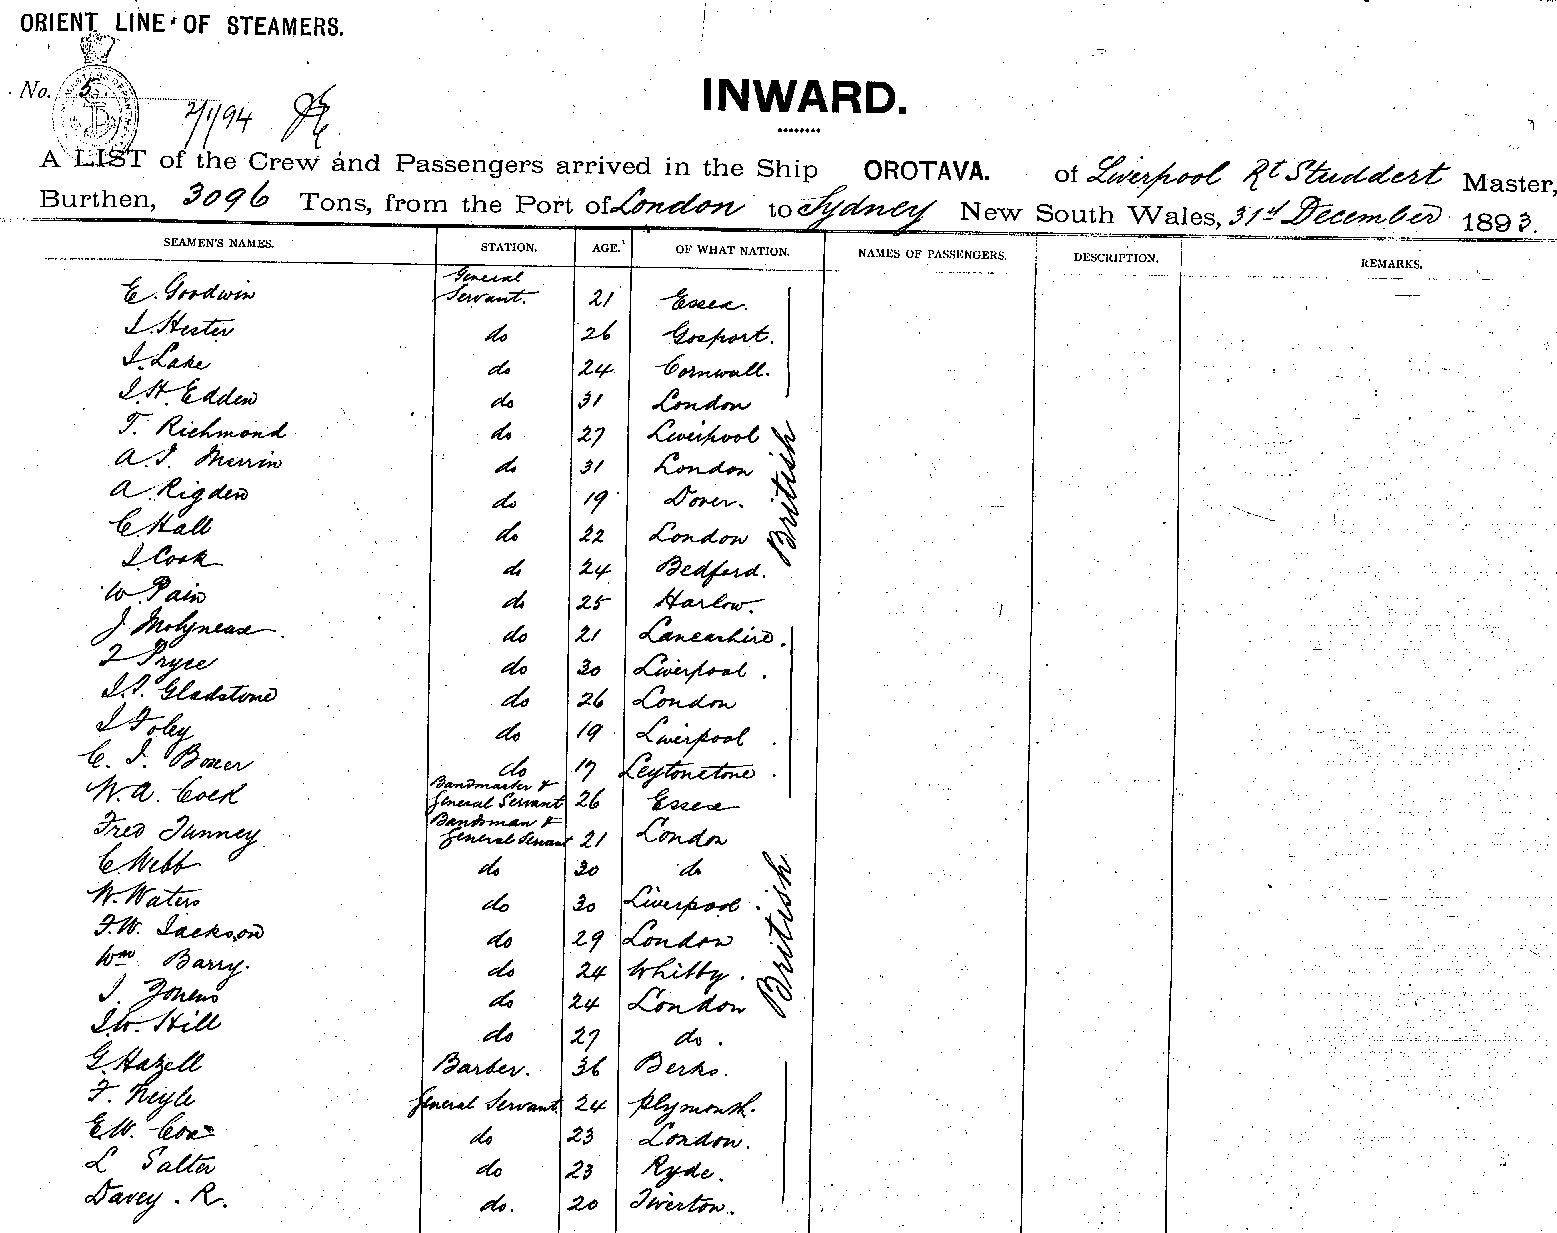 ORIENT LINE OF STEAMERS.
No. 5
2/1/94
INWARD.
A LIST of the Crew and Passengers arrived in the Ship OROTAVA. of Liverpool Rt Studdert Master,
Burthen, 3096 Tons, from the Port of London to Sydney New South Wales, 31st December 1893.
SEAMEN'S NAMES. STATION. AGE. OF WHAT NATION. NAMES OF PASSENGERS. DESCRIPTION. REMARKS.
E. Goodwin General Servant. 21 Essex.
J. Hester do 26 Gosport.
J. Lake do 24 Cornwall.
J. H. Edden do 31 London
T. Richmond do 27 Liverpool
A. J. Merrin do 31 London
A. Rigden do 19 Dover.
C Hall do 22 London
J. Cook do 24 Bedford.
W. Pain do 25 Harlow.
J Molyneaux do 21 Lancashire.
Pryce do 30 Liverpool.
J. J. Gladstone do 26 London
J Foley do 19 Liverpool
C. J. Boxer do 17 Leytonstone.
W. A. Cock Bandmaster & General Servant 26 Essex
Fred Tunney Bandsman & General Servant 21 London
C Webb do 30 do
W. Waters do 30 Liverpool.
F. W. Jackson do 29 London
Wm Barry. do 24 Whitby.
J. do 24 London
J. W. Hill do 27 do.
G. Hazell Barber. 36 Berks.
F. Neyle General Servant 24 Plymouth.
E. W. Cox do 23 London.
L Salter do 23 Ryde.
Davey. R. do. 20 Tiverton.
British
British